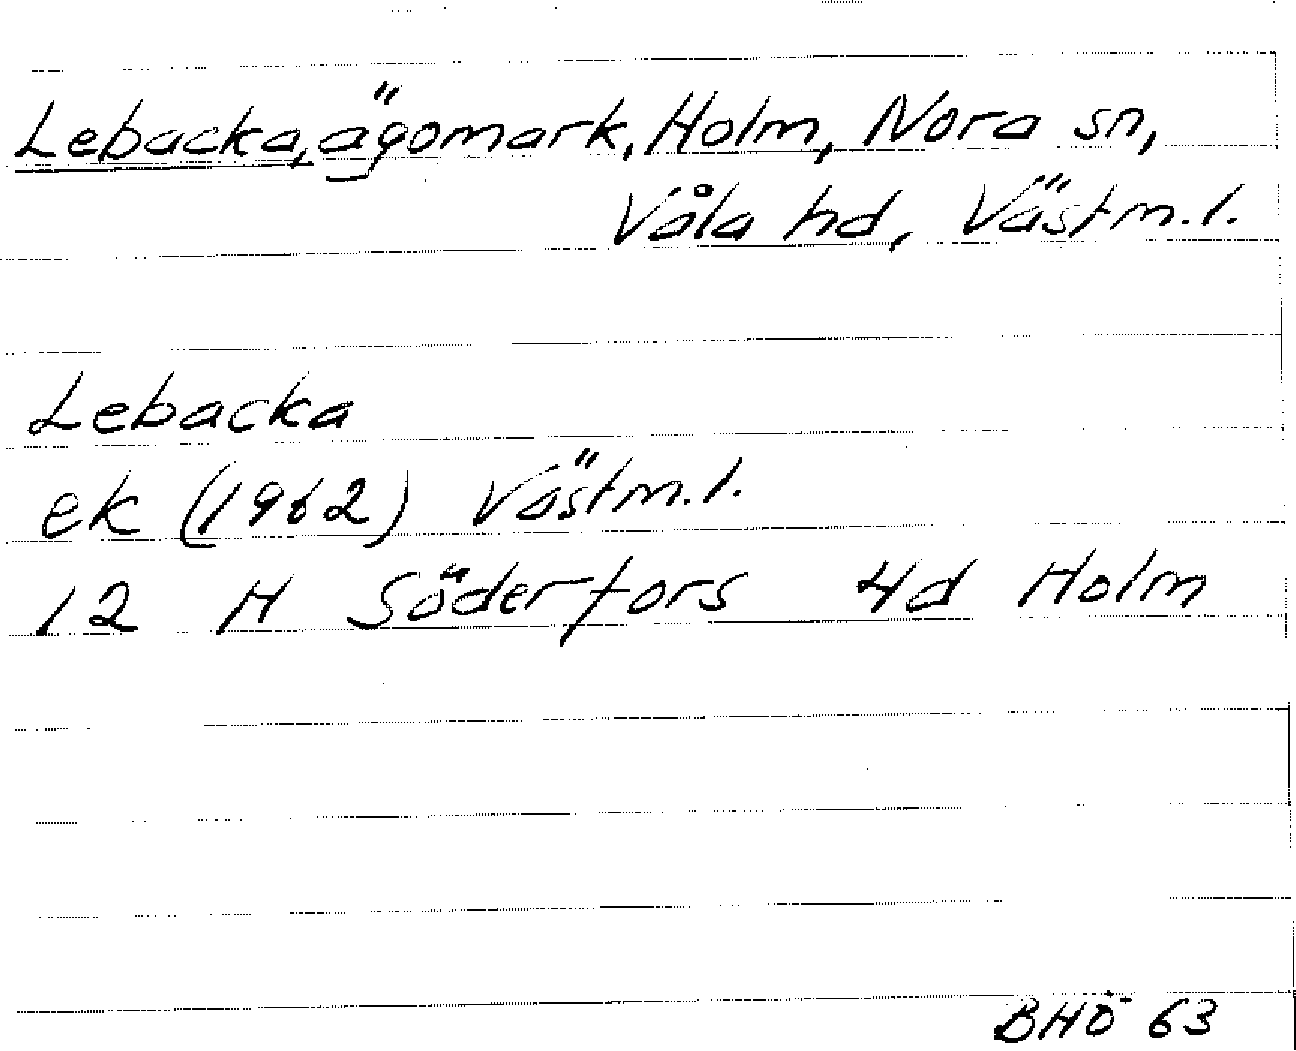 Lebacka, ägomark, Holm, Nora sn,
Våla hd, Västm. l.
Lebacka
ek (1962) Västm. l.
12 H Söderfors 4d Holm
BHÖ 63